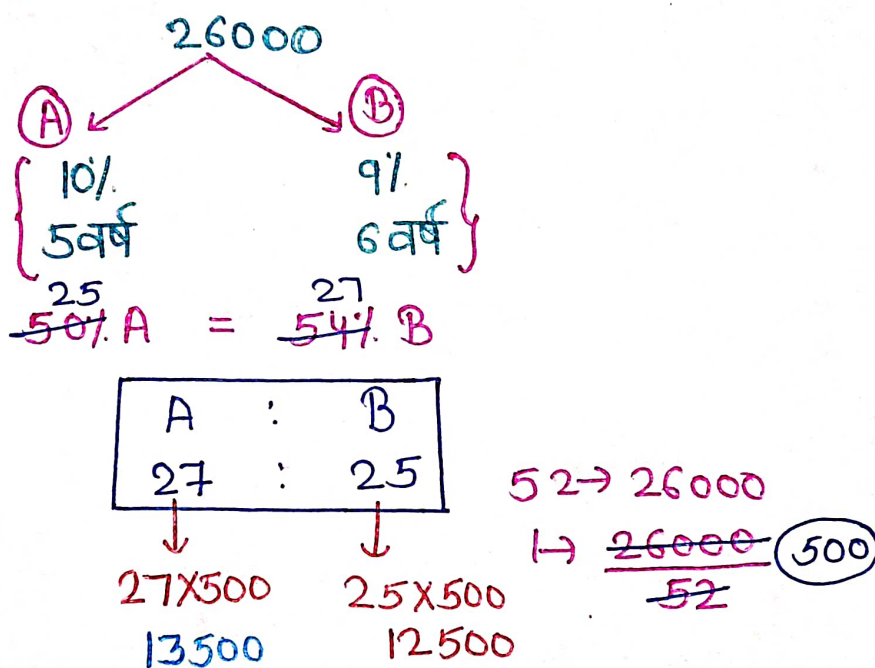 26000
A B
10% 9%
5 वर्ष 6 वर्ष
25 27
50% A = 54% B
A : B
27 : 25
52→ 26000
1→ 26000/52 500
27×500 25×500
13500 12500